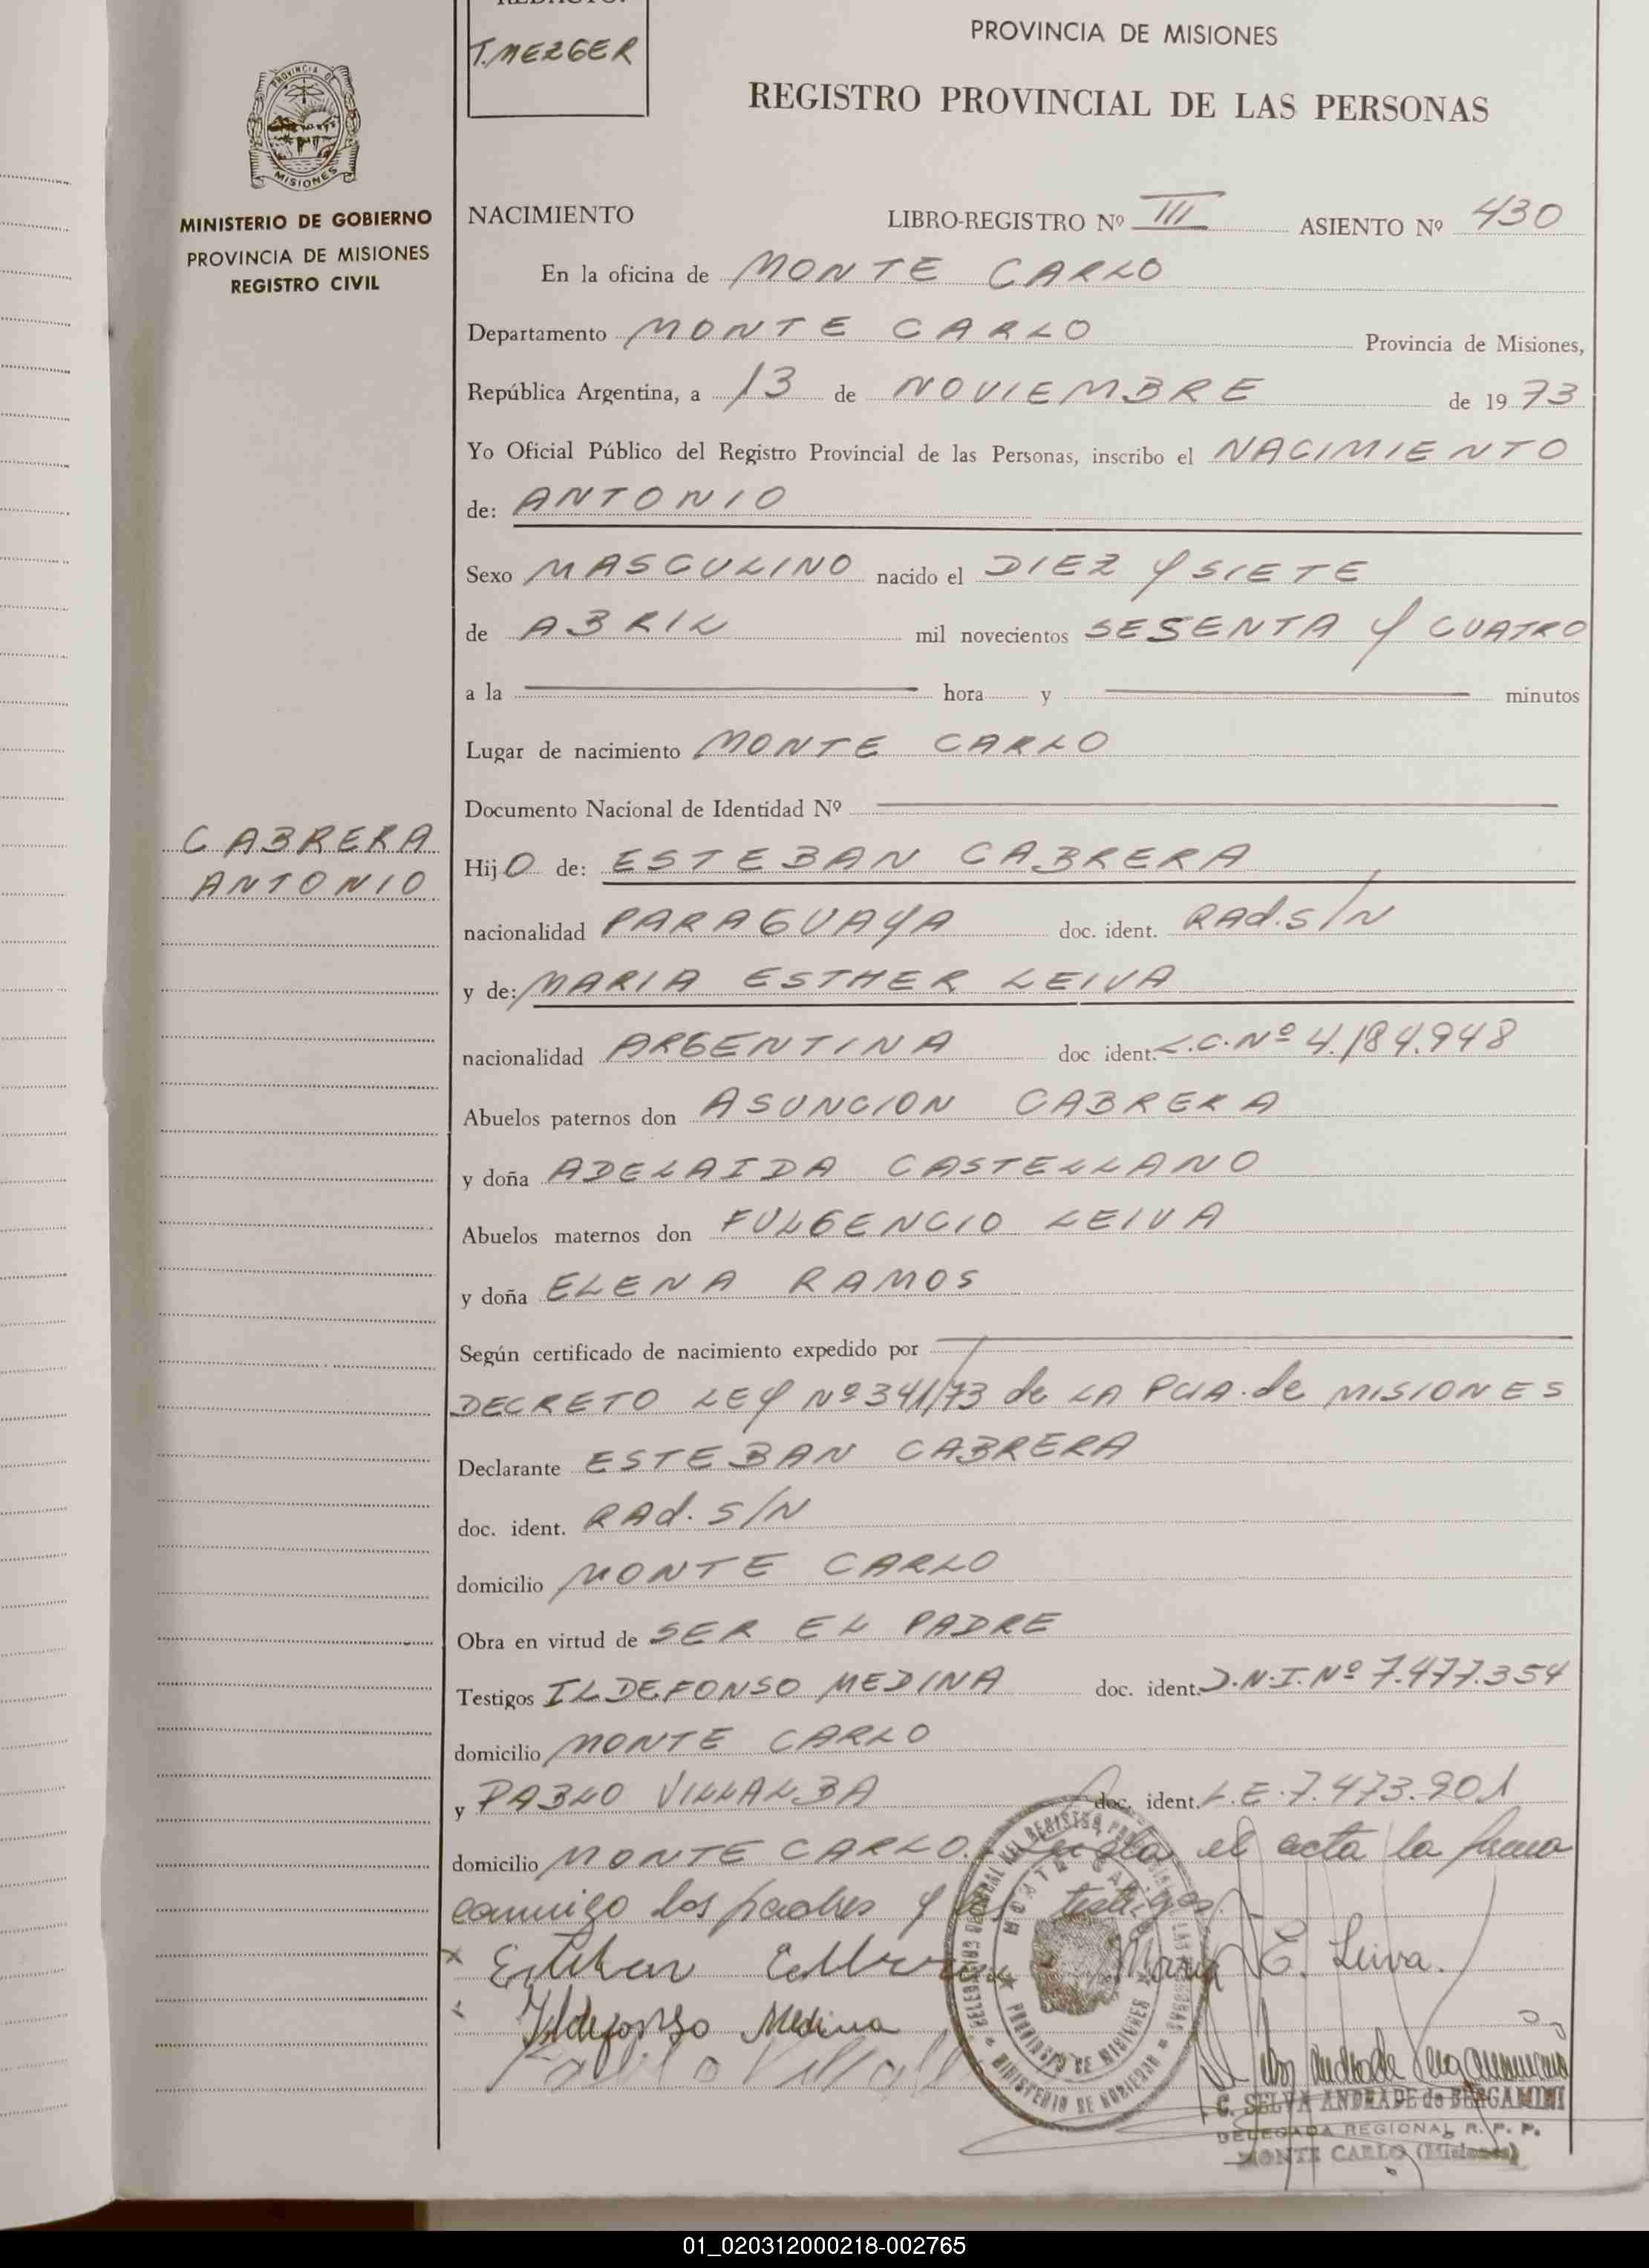 REDACTO:
T. MEZGER
PROVINCIA DE MISIONES
REGISTRO PROVINCIAL DE LAS PERSONAS
PROVINCIA DE
MISIONES
MINISTERIO DE GOBIERNO
PROVINCIA DE MISIONES
REGISTRO CIVIL
NACIMIENTO LIBRO-REGISTRO Nº III ASIENTO Nº 430
En la oficina de MONTE CARLO
Departamento MONTE CARLO Provincia de Misiones,
República Argentina, a 13 de NOVIEMBRE de 1973
Yo Oficial Público del Registro Provincial de las Personas, inscribo el NACIMIENTO
de: ANTONIO
Sexo MASCULINO nacido el DIEZ y SIETE
de ABRIL mil novecientos SESENTA y CUATRO
a la hora y minutos
Lugar de nacimiento MONTE CARLO
Documento Nacional de Identidad Nº
CABRERA
ANTONIO
HijO de: ESTEBAN CABRERA
nacionalidad PARAGUAYA doc. ident. RAd. S/N
y de: MARIA ESTHER LEIVA
nacionalidad ARGENTINA doc ident. L.C. Nº 4.184.948
Abuelos paternos don ASUNCION CABRERA
y doña ADELAIDA CASTELLANO
Abuelos maternos don FULGENCIO LEIVA
y doña ELENA RAMOS
Según certificado de nacimiento expedido por
DECRETO LEy Nº 341/73 de LA PCIA. de MISIONES
Declarante ESTEBAN CABRERA
doc. ident. RAd. S/N
domicilio MONTE CARLO
Obra en virtud de SER EL PADRE
Testigos ILDEFONSO MEDINA doc. ident. D.N.I. Nº 7.477.354
domicilio MONTE CARLO
y PABLO VILLALBA doc. ident. L.E. 7.473.901
domicilio MONTE CARLO. Leida el acta la firma
conmigo los padres y los testigos.
Esteban Cabrera Maria E. Leiva.
Ildefonso Medina
Pablo Villalba
MONTE CARLO
PROVINCIA DE MISIONES
MINISTERIO DE GOBIERNO
C. SELVA ANDRADE de BERGAMINI
DELEGADA REGIONAL R. P. P.
MONTE CARLO (Misiones)
01_020312000218-002765